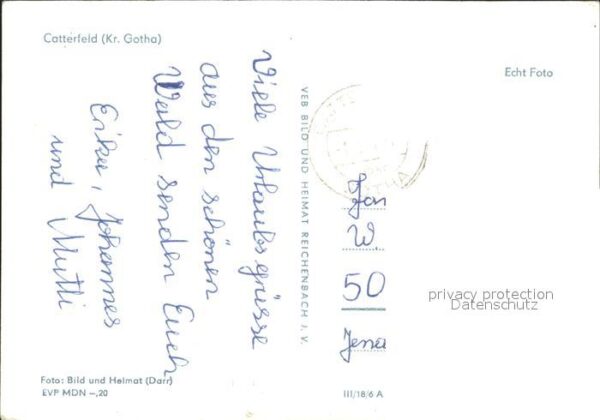 Catterfeld (Kr. Gotha)
Echt Foto
Viele Urlaubsgrüsse
aus den schönen
Wald senden Euch
Erika, Johannes
und Mutti
VEB BILD UND HEIMAT REICHENBACH I. V.
GOTHA
Fam
W.
50
Jena
privacy protection
Datenschutz
Foto: Bild und Heimat (Darr)
EVP MDN –,20
III/18/6 A